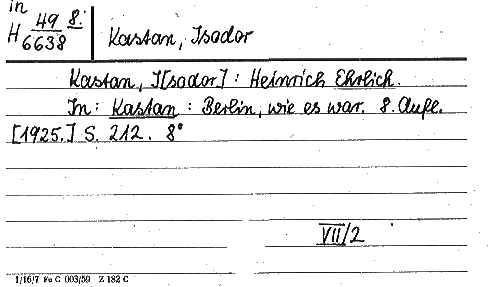 in
H 49 8.
6638
Kastan, Isador
Kastan, I[sador]: Heinrich Ehrlich.
In: Kastan: Berlin, wie es war. 8. Aufl.
[1925.] S. 212. 8°
VII/2
1/16/7 Fo C 003/59 Z 182 C